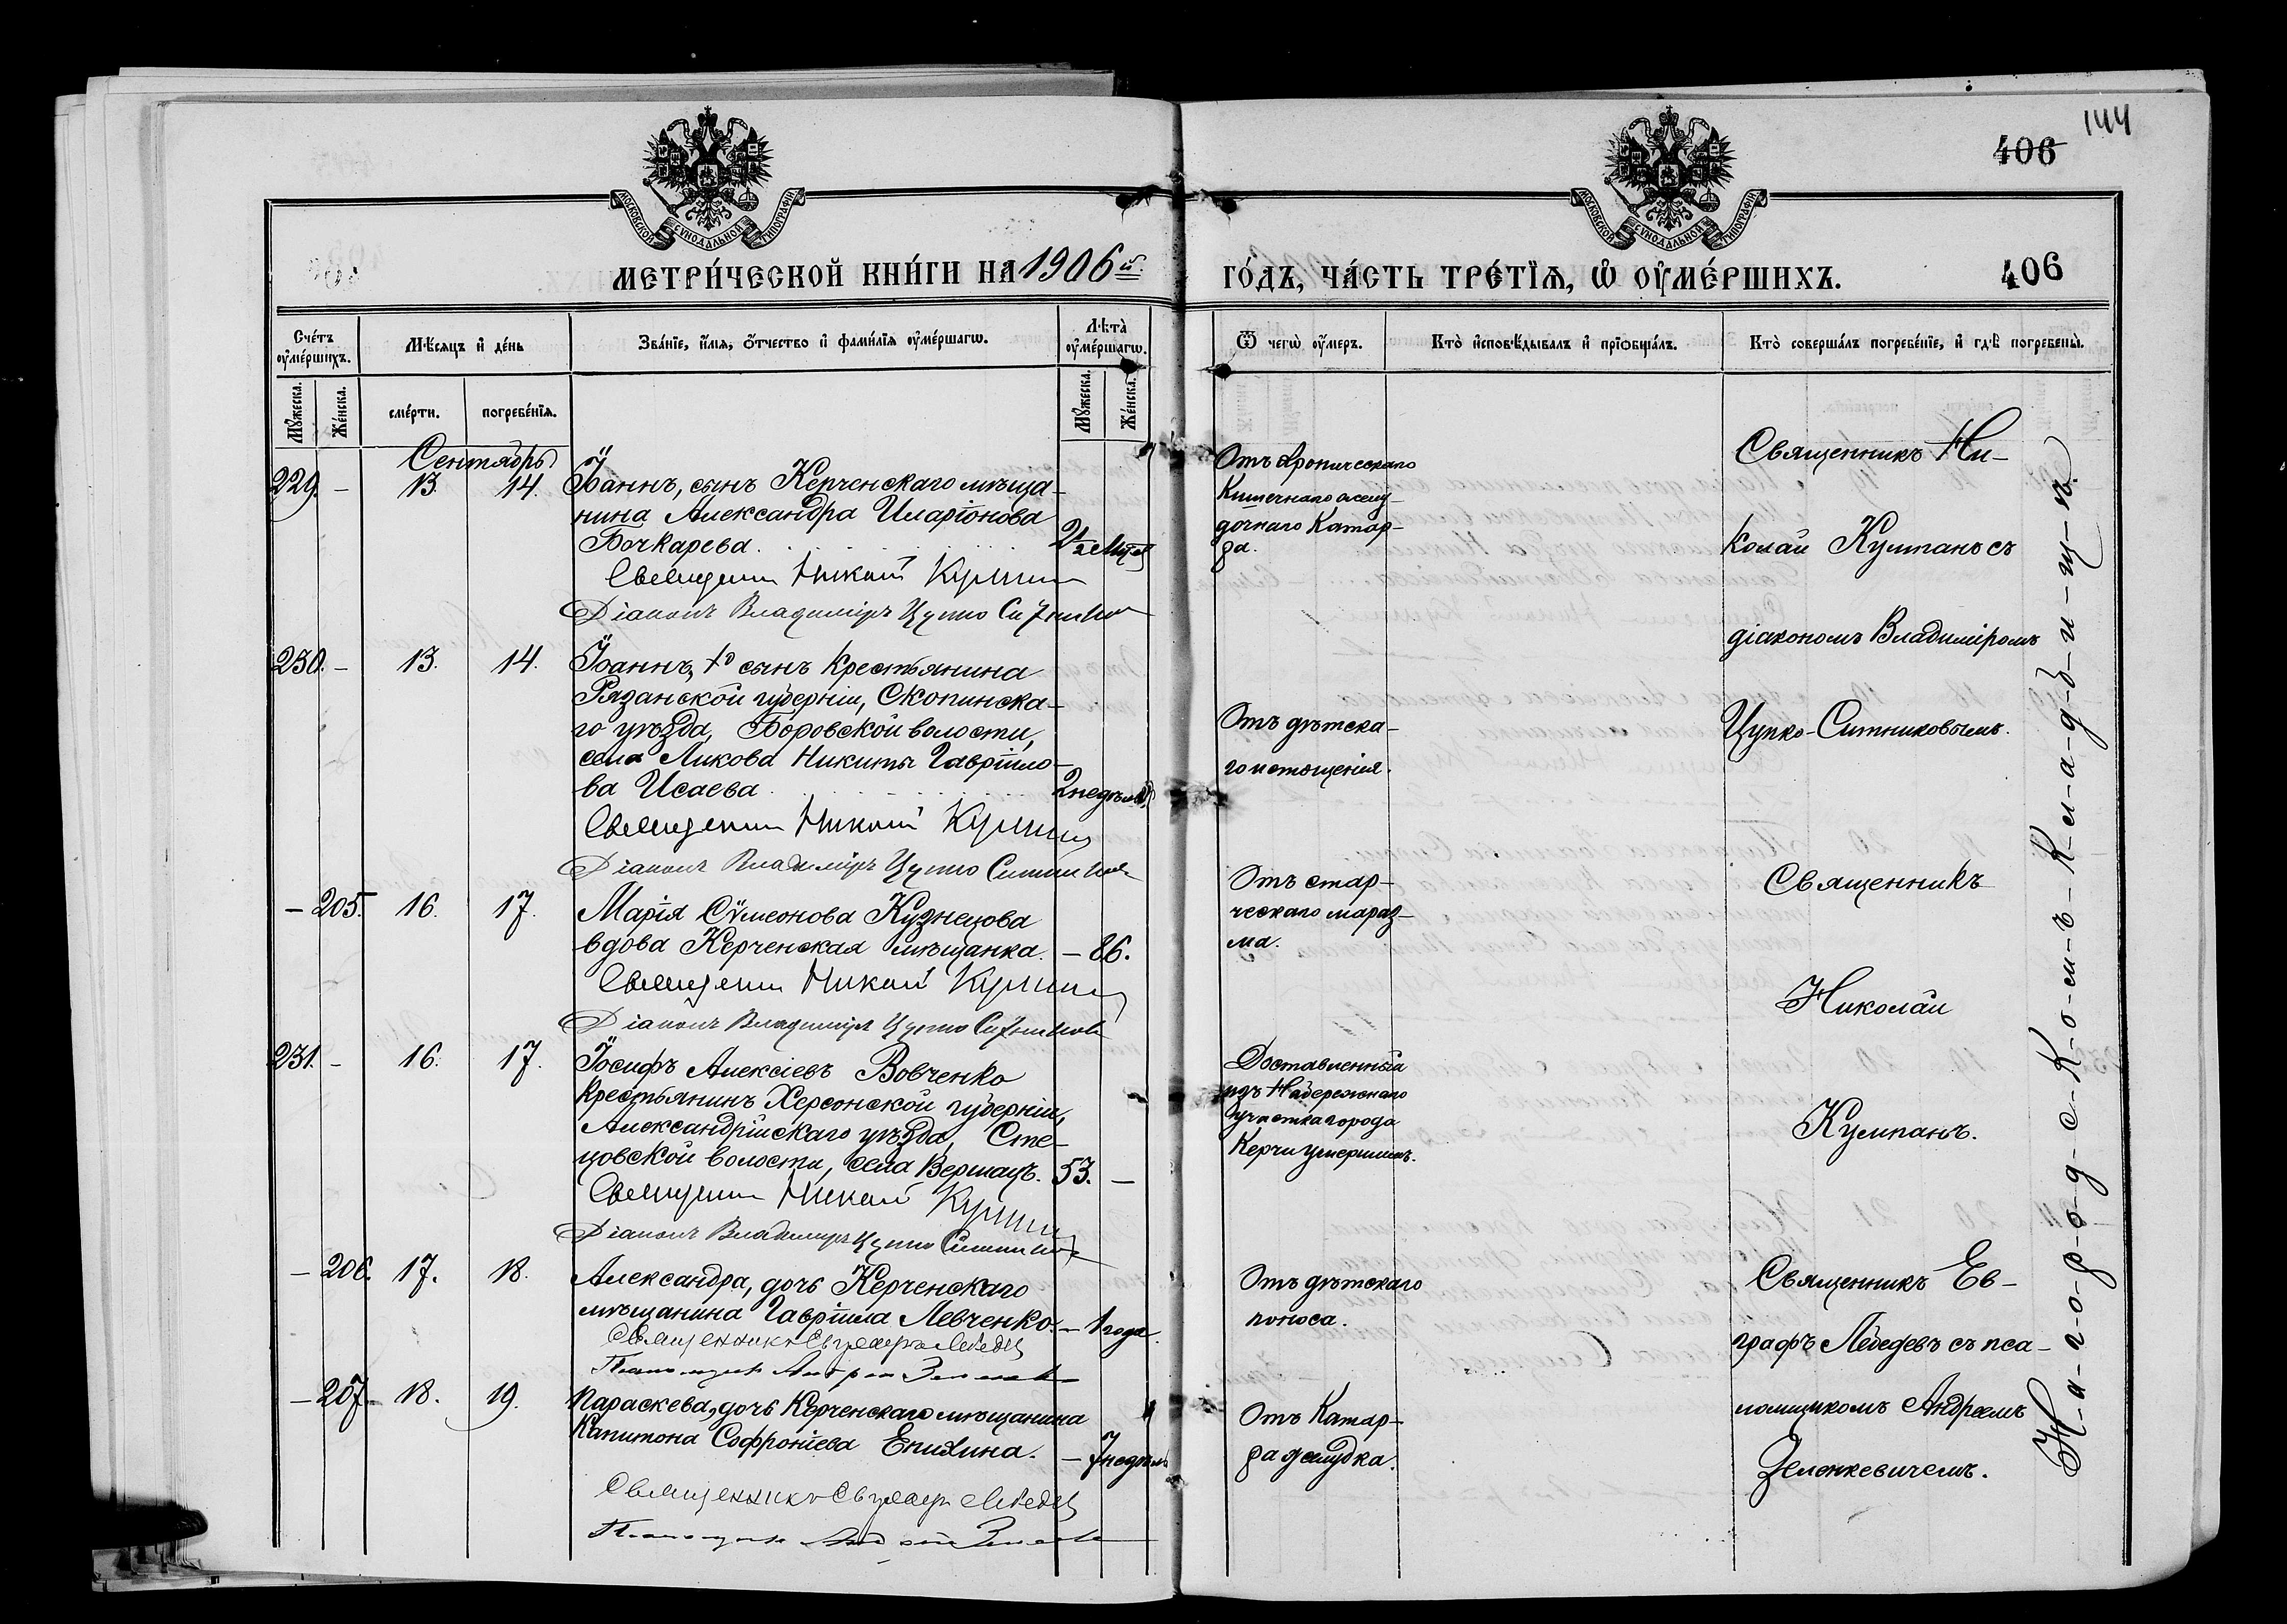 144
406
МОСКОВСКОЙ СѴНОДАЛЬНОЙ ТИПОГРАФІИ
МОСКОВСКОЙ СѴНОДАЛЬНОЙ ТИПОГРАФІИ
МЕТРИ́ЧЕСКОЙ КНИ́ГИ НА 1906й ГО́ДЪ, ЧА́СТЬ ТРЕ́ТЇѦ, Ѡ҆ ОУ҆МЕ́РШИХЪ. 406
Сче́тъ оу҆ме́ршихъ.
Мѣ́сѧцъ и҆ де́нь
Зва́нїе, и҆́мѧ, ѻ҆́тчество и҆ фами́лїѧ оу҆ме́ршагѡ.
Лѣ́та̀ оу҆ме́ршагѡ.
Ѿ чегѡ̀ оу҆́меръ.
Кто̀ и҆сповѣ́дывалъ и҆ прїѡбща́лъ.
Кто̀ соверша́лъ погребе́нїе, и҆ гдѣ̀ погребены̀.
Мꙋ́жеска.
Же́нска.
сме́рти.
погребе́нїѧ.
Мꙋ́жеска.
Же́нска.
Сентябрь
229. - 13. 14. Іоаннъ, сынъ Керченскаго мѣща-
нина Александра Иларіонова
Бочкарева. 2½ мѣс.
Священникъ Николай Кумпанъ
Діаконъ Владиміръ Цупко Ситников
Отъ хроническаго
Кишечнаго желу-
дочнаго Катар-
ра.
Священникъ Ни-
колай Кумпанъ съ
діакономъ Владиміромъ
Цупко-Ситниковымъ.
230. - 13. 14. Іоаннъ, сынъ Крестьянина
Рязанской губерніи, Скопинска-
го уѣзда, Боровской волости,
села Ликова Никиты Гавріило-
ва Исаева 2 недѣли
Священникъ Николай Кумпанъ
Діаконъ Владиміръ Цупко Ситников
Отъ дѣтска-
го истощенія.
- 205. 16. 17. Марія Сѵмеонова Кузнецова
вдова Керченская мѣщанка. - 86.
Священникъ Николай Кумпанъ
Діаконъ Владиміръ Цупко Ситников
Отъ стар-
ческаго мараз-
ма.
Священникъ
Николай
Кумпанъ.
231. - 16. 17. Іосифъ Алексіевъ Вовченко
Крестьянинъ Херсонской губерніи,
Александрійскаго уѣзда, Сте-
цовской волости, села Вершацъ. 53. -
Священникъ Николай Кумпанъ
Діаконъ Владиміръ Цупко Ситников
Доставленный
изъ Набережнаго
участка города
Керчи умершимъ.
- 206. 17. 18. Александра, дочь Керченскаго
мѣщанина Гавріила Левченко. - 1 года.
Священникъ Евграфъ Лебедев
Псаломщикъ Андрей
Отъ дѣтскаго
поноса.
Священникъ Ев-
графъ Лебедевъ съ пса-
ломщикомъ Андреемъ
Зеленкевичемъ.
- 207 - 18. 19. Параскева, дочь Керченскаго мѣщанина
Капитона Софроніева Епихина. - 7 недѣль
Священникъ Евграфъ Лебедев
Псаломщикъ Андрей
Отъ Катар-
ра желудка.
На-г-о-р-о-д-с-К-о-м-ъ- К-л-а-д-б-и-щ-ѣ.